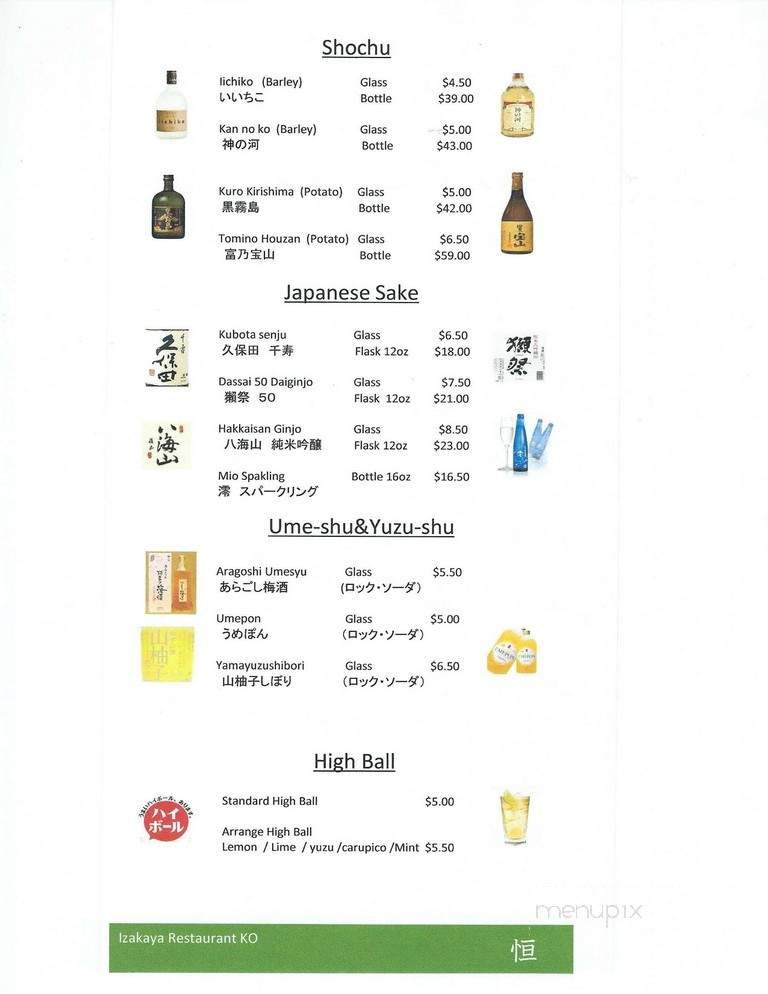 Shochu
Iichiko (Barley) Glass $4.50
いいちこ Bottle $39.00
Kan no ko (Barley) Glass $5.00
神の河 Bottle $43.00
Kuro Kirishima (Potato) Glass $5.00
黒霧島 Bottle $42.00
Tomino Houzan (Potato) Glass $6.50
富乃宝山 Bottle $59.00
Japanese Sake
Kubota senju Glass $6.50
久保田 千寿 Flask 12oz $18.00
久保田
Dassai 50 Daiginjo Glass $7.50
獺祭 50 Flask 12oz $21.00
獺祭
Hakkaisan Ginjo Glass $8.50
八海山 純米吟醸 Flask 12oz $23.00
八海山
Mio Spakling Bottle 16oz $16.50
澪 スパークリング
Ume-shu&Yuzu-shu
Aragoshi Umesyu Glass $5.50
あらごし梅酒 (ロック・ソーダ)
Umepon Glass $5.00
うめぽん (ロック・ソーダ)
Yamayuzushibori Glass $6.50
山柚子しぼり (ロック・ソーダ)
山柚子
High Ball
Standard High Ball $5.00
うまいハイボール、あります。
ハイ
ボール
Arrange High Ball
Lemon / Lime / yuzu /carupico /Mint $5.50
menupix
Izakaya Restaurant KO
恒